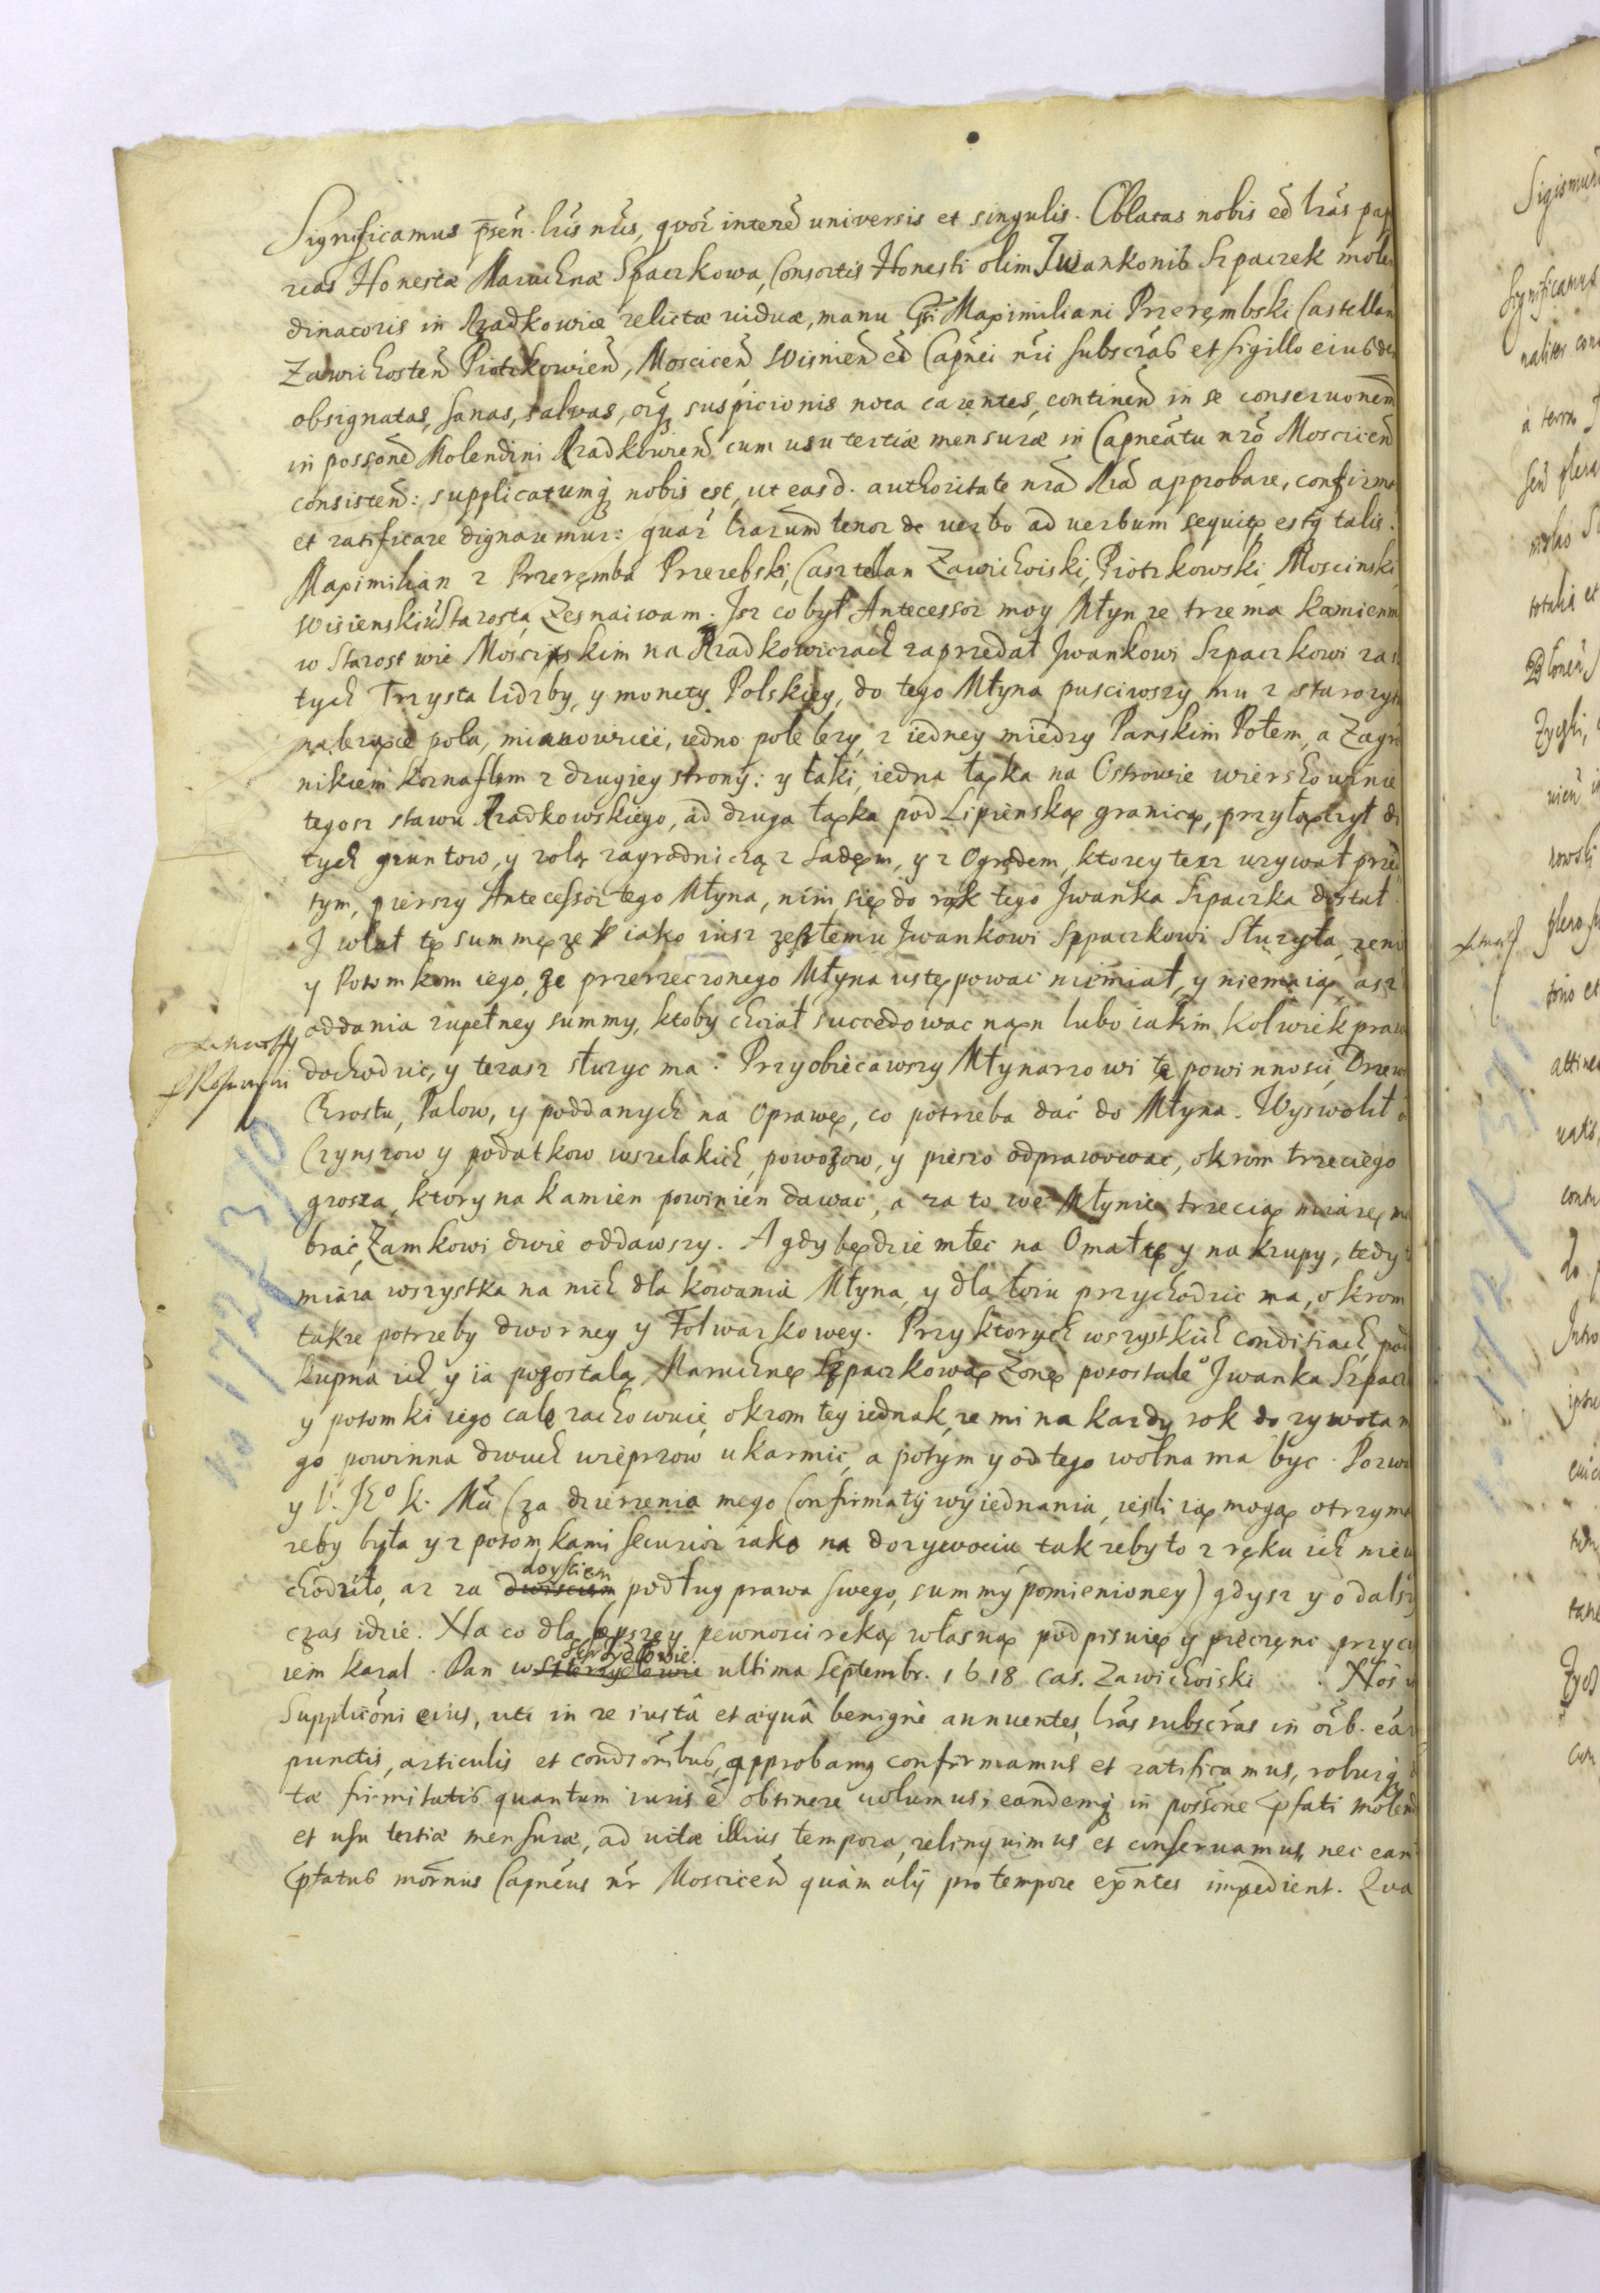 Significamus p̄sen. lr̄is nr̄is, quor̄ intere͂ universis et singulis. Oblatas nobis ee͂ lr̄as pap
reas Honestæ Maruchnæ Spaczkowa, Consortis Honesti olim Iwankonis Szpaczek molen
dinatoris in Rzadkowice relictæ uiduæ, manu Gsi Maximiliani Przeręmbski Castellan
Zawichosten͂ Piotrkowien͂, Moscicen͂ Wisnien͂ et Capn̄ei nr̄i subscr̄as et sigillo eiusde
obsignatas, sanas, saluas, oīq suspicionis nota carentes, continen͂ in se conseruon͂em
in posson͂e Molendini Rzadkowien͂ cum usu tertiæ mensuræ in Capneātu nr̄o Moscicen͂
consisten͂: supplicatumq nobis est, ut easd. authoritate nr̄a Rā approbare, confirma
et ratificare dignaremur: quar̄ lr̄arum͂ tenor de uerbo ad uerbum sequitr, estq talis.
Maximilian z Przeręmba Przerebski, Casztelan Zawichoiski, Piotrkowski, Moscinski
Wisienski Starosta, Zesnaiwam. Isz co był Antecessor moy Młyn ze trzema kamienmi
w Starostwie Mościskim na Rzadkowiczach zaprzedał Iwankowi Szpaczkowi za
tych Trzysta lidzby, y monety Polskiey, do tego Młyna pusciwszy mu z starozyt
nalezące pola, mianowicie, iedno pole lezy z iedney miedzy Panskim Polem, a Zagro
nikiem Koznaslem z drugiey strony: y łąki, iedna łąka na Ostrowie wierzchowinie
tegosz stawu Rzadkowskiego, ad druga łąka pod Lipienską granicą, przyłączył do
tych gruntow, y rolą zagrodniczą z sadęm, y z Ogrodem, ktorey tesz uzywał przed
tym, pierszy Antecessor tego Młyna, nim się do rąk tego Iwanka Szpaczka dostał.
I wlał tę summę ze iako iusz zeszłemu Iwankowi Szpaczkowi Słuzyła, zeni
y Potomkom iego, ze przerzeczonego Młyna ustępowac niemiał, y niemaią, asz
oddania zupełney summy, ktoby chciał succedowac nań lubo iakim kolwiek praw
dochodzic, y terasz słuzyc ma. Przyobiecawszy Młynarzowi te powinnosci, Drzew
Chrostu, Palow, y poddanych na Oprawę, co potrzeba dać do Młyna. Wyswolił o
Czynszow y podatkow wszelakich, powozow, y pieszo odprawować, okrom trzeciego
grosza, który na kamien powinien dawac, a za to we Młynie trzecią miarę ma
brać, Zamkowi dwie oddawszy. A gdy będzie młec na Omałtę y na krupy, tedy
miara wszystka na nich dla kowania Młyna, y dla łoiu przychodzic ma, okrom
takze potrzeby dworney y Folwarkowey. Przy ktorych wszystkich conditiach, pod
kupna ich, y ia pozostalą Maruchnę Szpaczkową Zonę pozostałe° Iwanka Szpacz
y potomki iego całe zachowuię, okrom tey iednak, ze mi na kazdy rok do zywota m
go powinna dwuch wieprzow ukarmic, a potym y od tego wolna ma byc. Pozwa
y V. JE° K. Mci (za dzierzenia mego Confirmatij wyiednania, iesli ią mogą otrzyma
zeby była y z potomkami securior iako na dozywociu tak zeby to z ręku ich nie
doysciem
chodziło, az za dwisciem podług prawa swego, summy pomienioney) gdysz y o dalszy
czas idzie. Na co dla lepszey pewnosci ręką własną podpisuię y pieczęnc przyci
ultima Septembr. 1618 Cas. Zawichoiski. Nos
Supplicon͂i eius, uti in re iustâ et æquâ benignè annuentes, lr̄as subscr̄as in oīb. ear
punctis, articulis et condicon͂ibus, approbamus confirmamus, et ratificamus, roburq
tæ firmitatis quantum iuris ē obtinere uolumus; eandemq in posson͂e p̄fati molend
et usu tertiæ mensuræ, ad uitæ illius tempora, relinquimus et conseruamus, nec eam
p̄fatus modernus Capneus nr̄ Moscicen͂ quàm alij pro tempore exn̄tes impedient. Qua
No 172 K 370
No 172 K 371